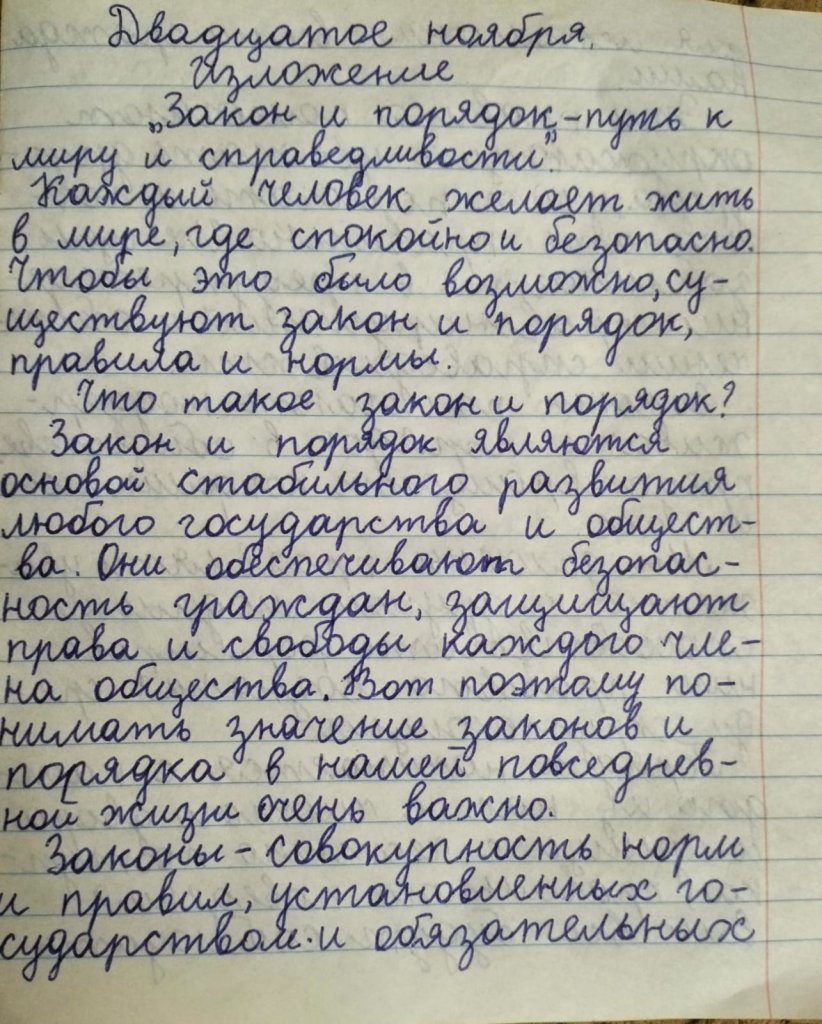 Двадцатое ноября.
Изложение
„Закон и порядок – путь к
миру и справедливости".
Каждый человек желает жить
в мире, где спокойно и безопасно.
Чтобы это было возможно, су-
ществуют закон и порядок,
правила и нормы.
Что такое закон и порядок?
Закон и порядок являются
основой стабильного развития
любого государства и общест-
ва. Они обеспечивают безопас-
ность граждан, защищают
права и свободы каждого чле-
на общества. Вот поэтому по-
нимать значение законов и
порядка в нашей повседнев-
ной жизни очень важно.
Законы – совокупность норм
и правил, установленных го-
сударством и обязательных